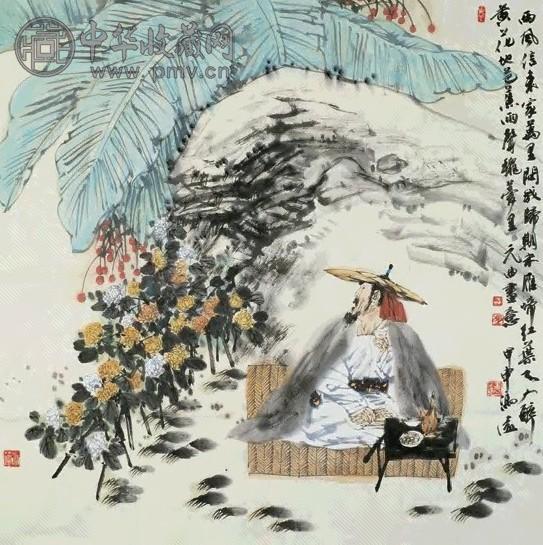 中华收藏网
www.pmv.cn
西風信来家萬里問我歸期未雁啼紅葉天人醉
黄花地芭蕉雨聲穐夢里元曲畫意
甲申